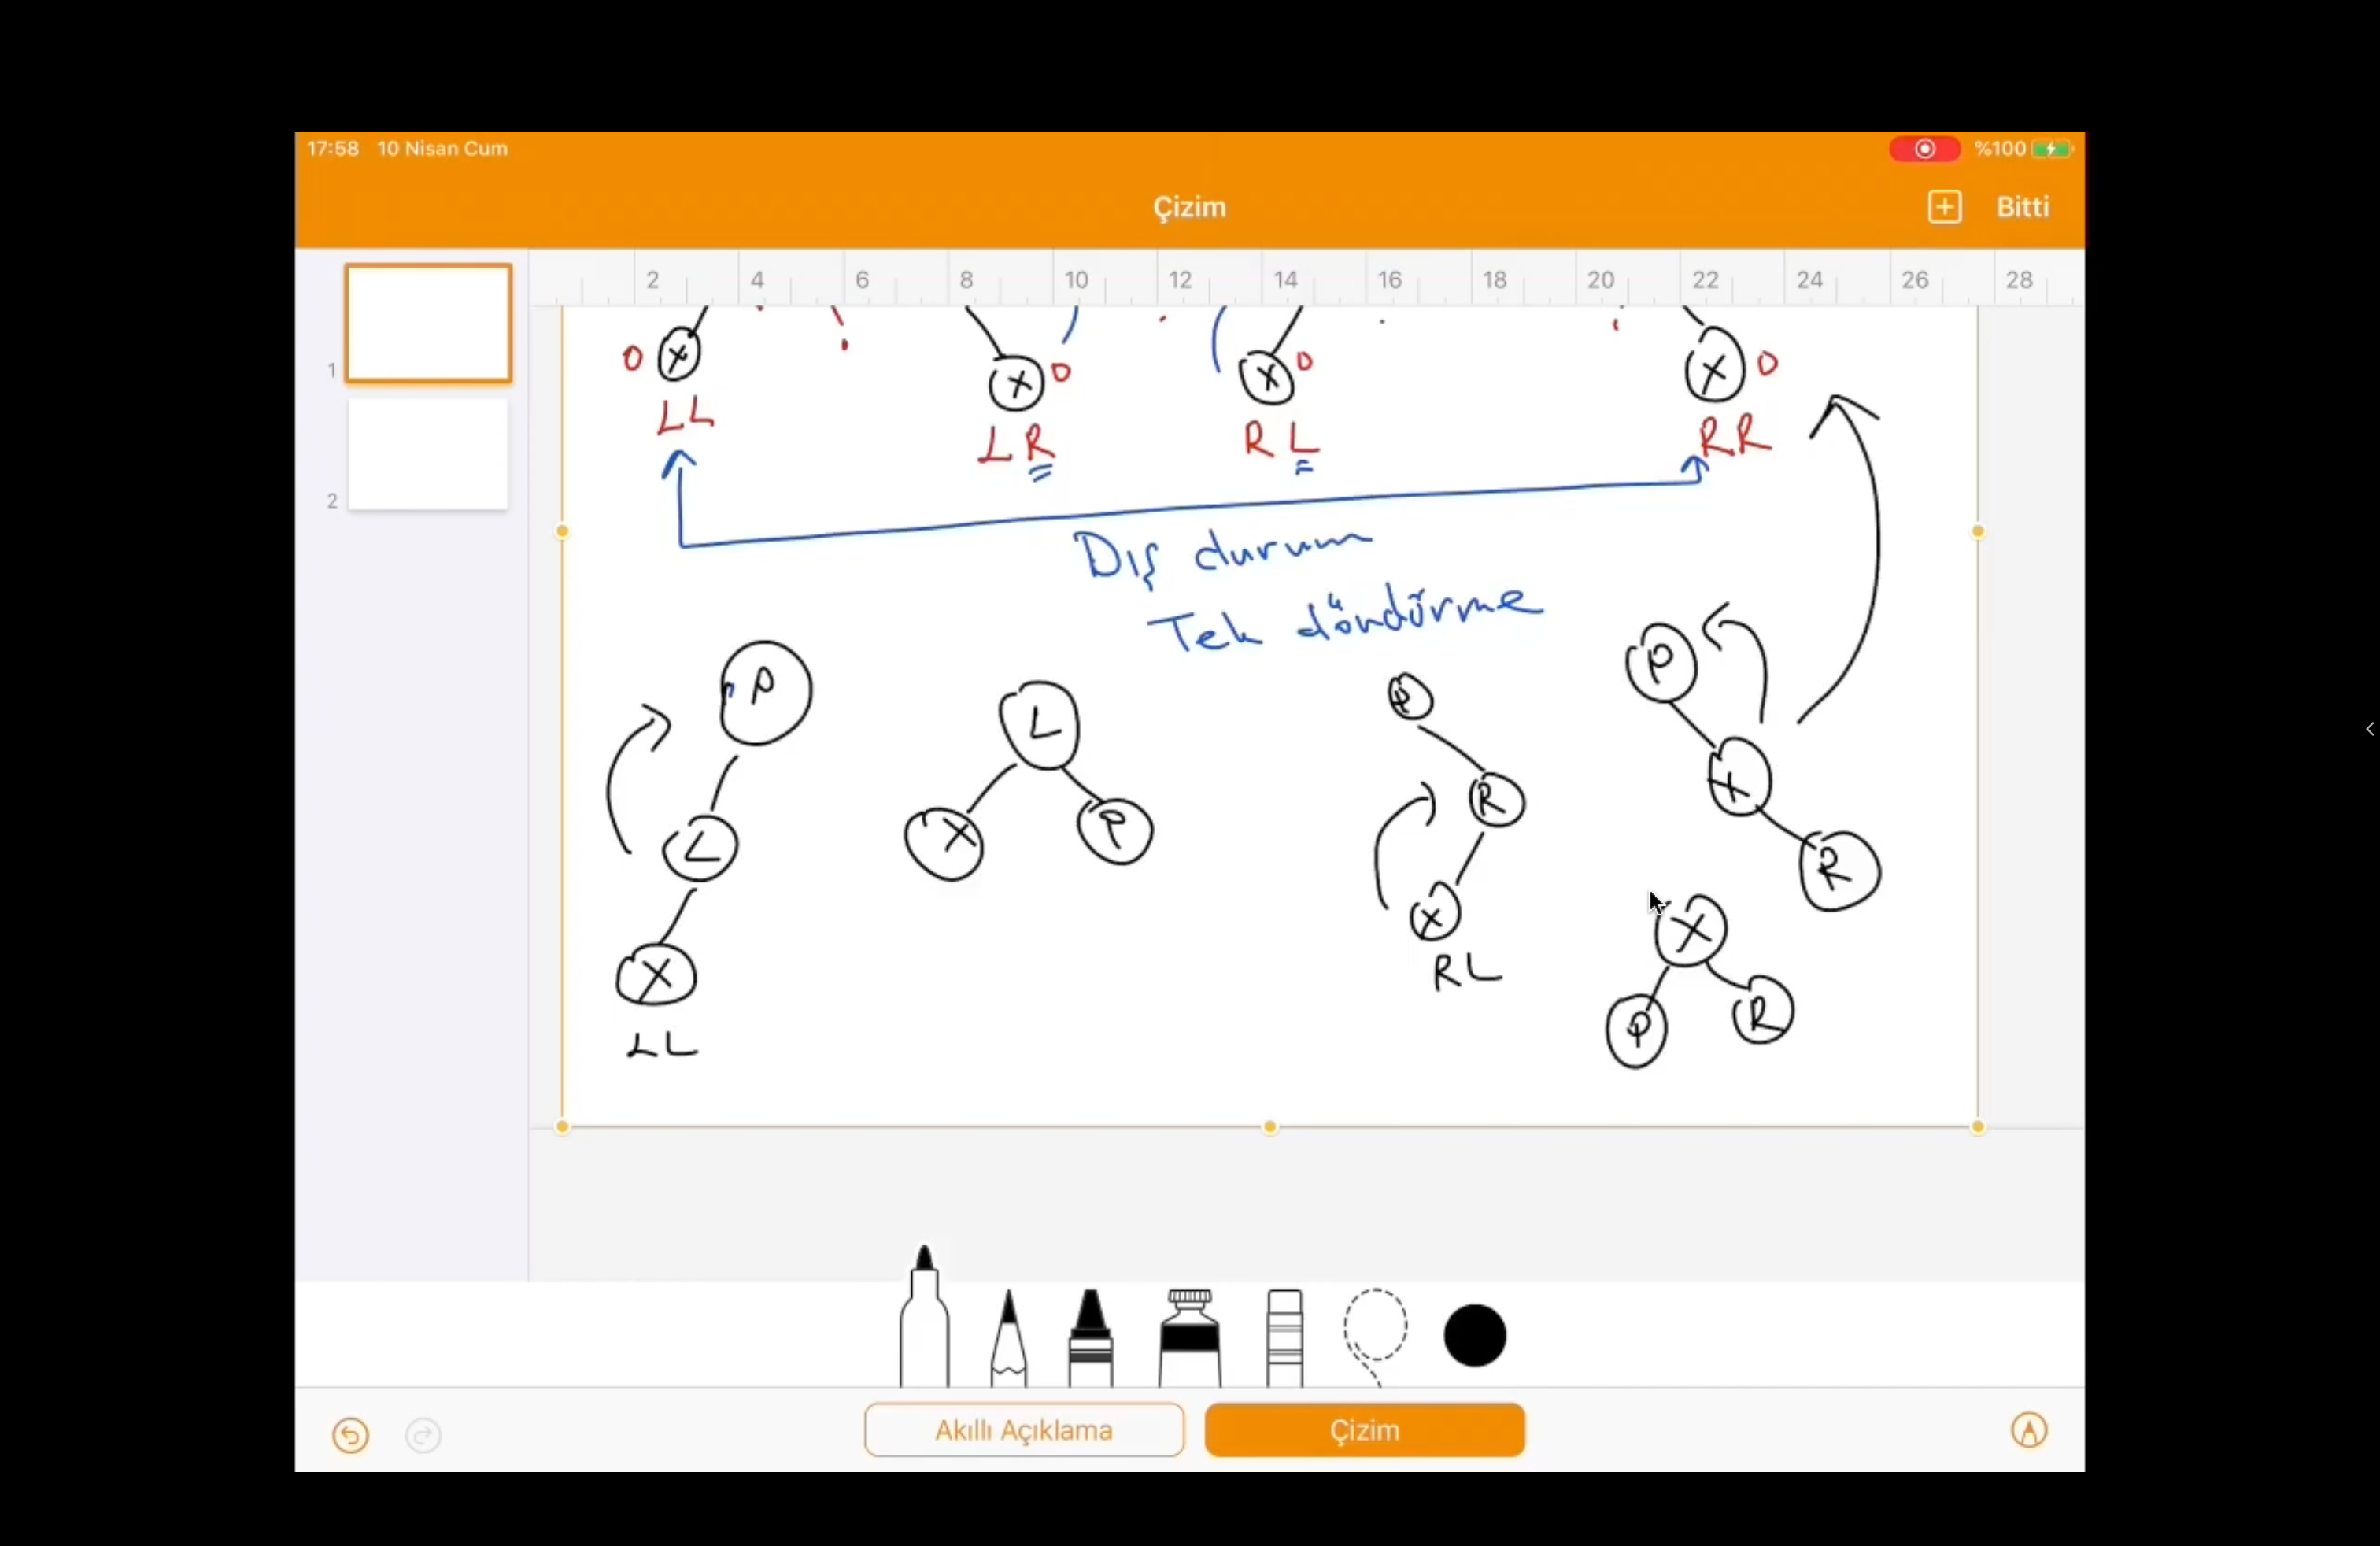 17:58 10 Nisan Cum %100
Çizim Bitti
2 4 6 8 10 12 14 16 18 20 22 24 26 28
1
2
0 X X 0 X 0 X 0
LL LR RL RR
Dış durum
Tek döndürme
P L P R P
L X P R X
X X R
LL RL X
P R
Akıllı Açıklama Çizim